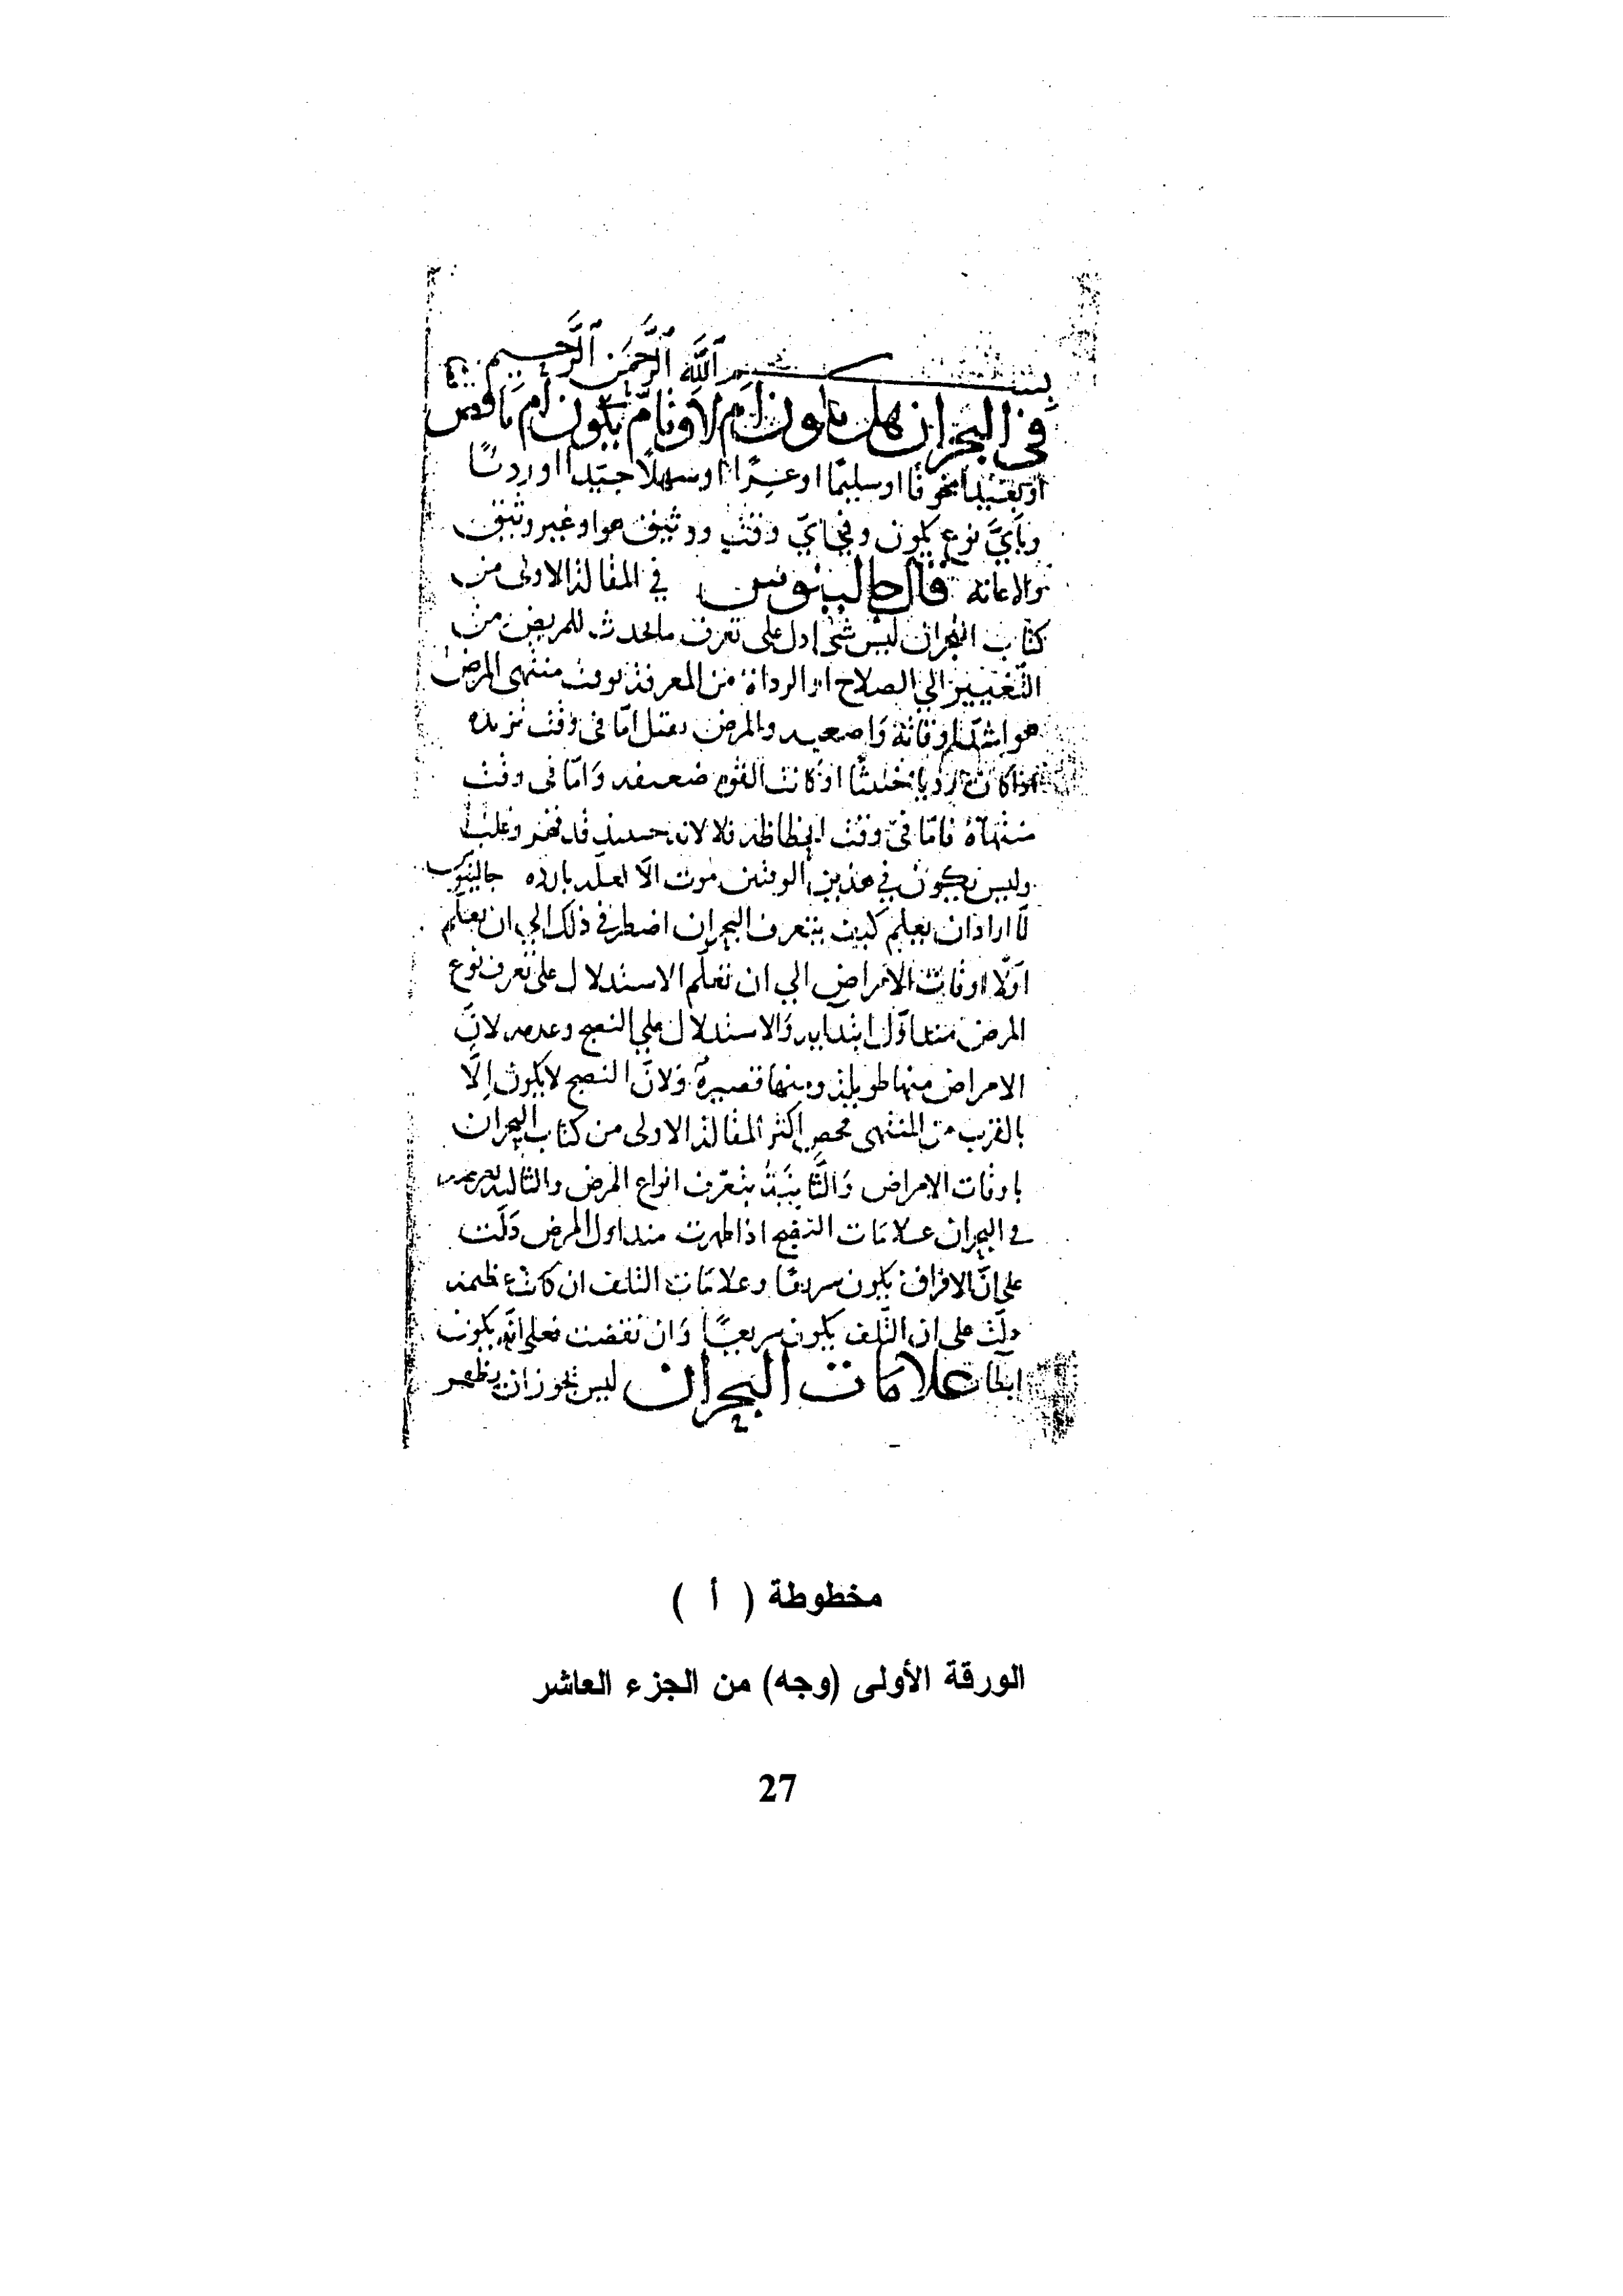 بسم الله الرحمن الرحيم
في البحران هل يكون ام لا وتام يكون ام ناقص
او سليما او عسرا او سهلا جيدا او رديا
وبأي نوع يكون وفي اي وقت ووثيق هو او غير وثيق
قال جالينوس في المقالة الاولى من
كتاب البحران ليس شي ادل على تعرف ما يحدث للمريض من
التغيير الي الصلاح او الرداة من المعرفة بوقت منتهى المرض
هو اشد اوقاته واصعبه والمرض يقتل اما في وقت تزيده
اذا كان رديا خبيثا او كانت القوة ضعيفه واما في وقت
منتهاه فاما في وقت انحطاطه فلا لانه حينيذ قد قهر وغلب
وليس يكون في هذين الوقتين موت الا لعلة بارده جالينوس
لما اراد ان يعلم كيف يتعرف البحران اضطر في ذلك الي ان يعلم
اولا اوقات الامراض الي ان تعلم الاستدلال على تعرف نوع
المرض منذ اول ابتدايه والاستدلال علي النضج وعدمه لان
الامراض منها طويلة ومنها قصيرة ولان النضج لا يكون الا
بالقرب من المنتهى اكثر المقالة الاولى من كتاب البحران
باوقات الامراض والثانية بتعرف انواع المرض والثالثة
في البحران علامات النضج اذا ظهرت منذ اول المرض دلت
على ان الافراق يكون سريعا وعلامات التلف ان كانت عظيمة
دلت على ان التلف يكون سريعا وان نقصت فعلى انه يكون
علامات البحران ليس يجوز ان يظهر
مخطوطة ( أ )
الورقة الأولى (وجه) من الجزء العاشر
27